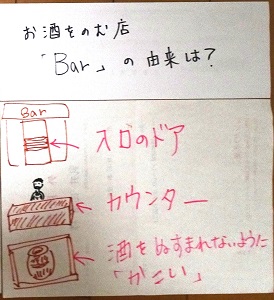 お酒をのむ店
「Bar」の由来は？
Bar
スイングのドア
カウンター
酒をぬすまれないように
「かこい」